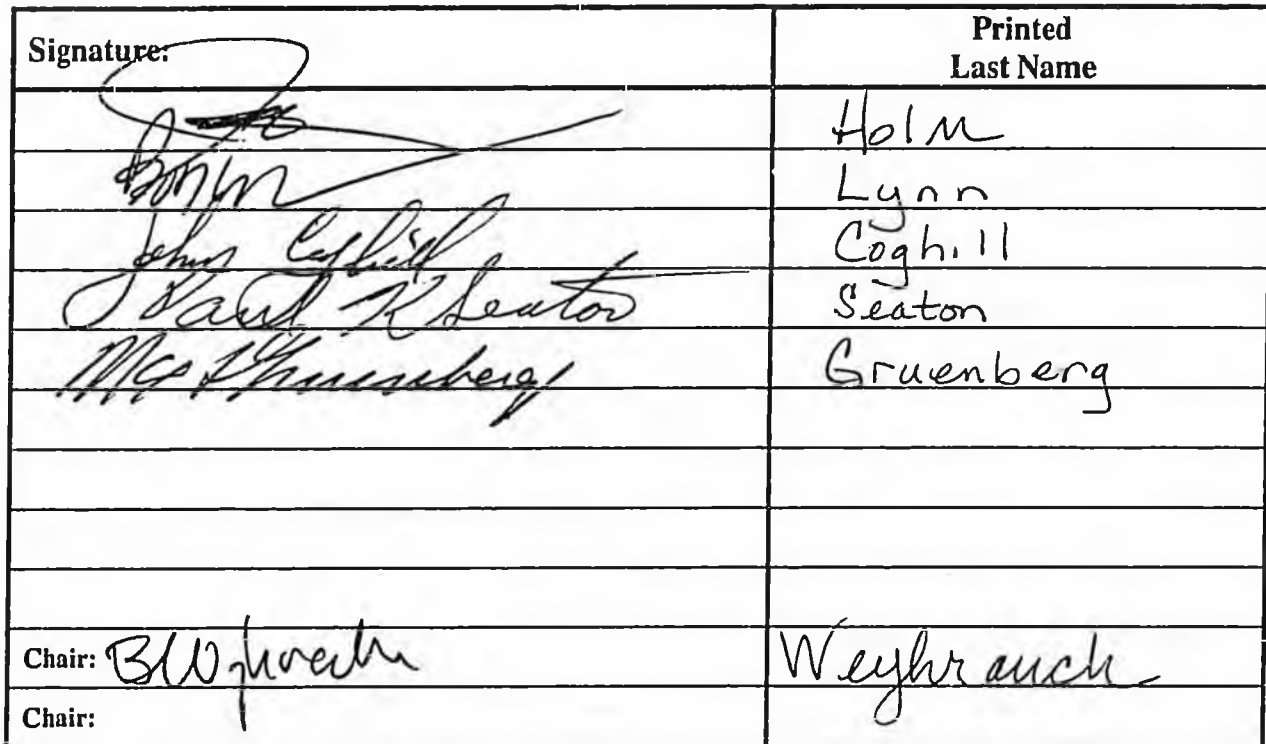 Signature: Printed
Last Name
Holm
Lynn
John Coghill Coghill
Paul K Seaton Seaton
Gruenberg Gruenberg
Chair: Weyhrauch
Chair: